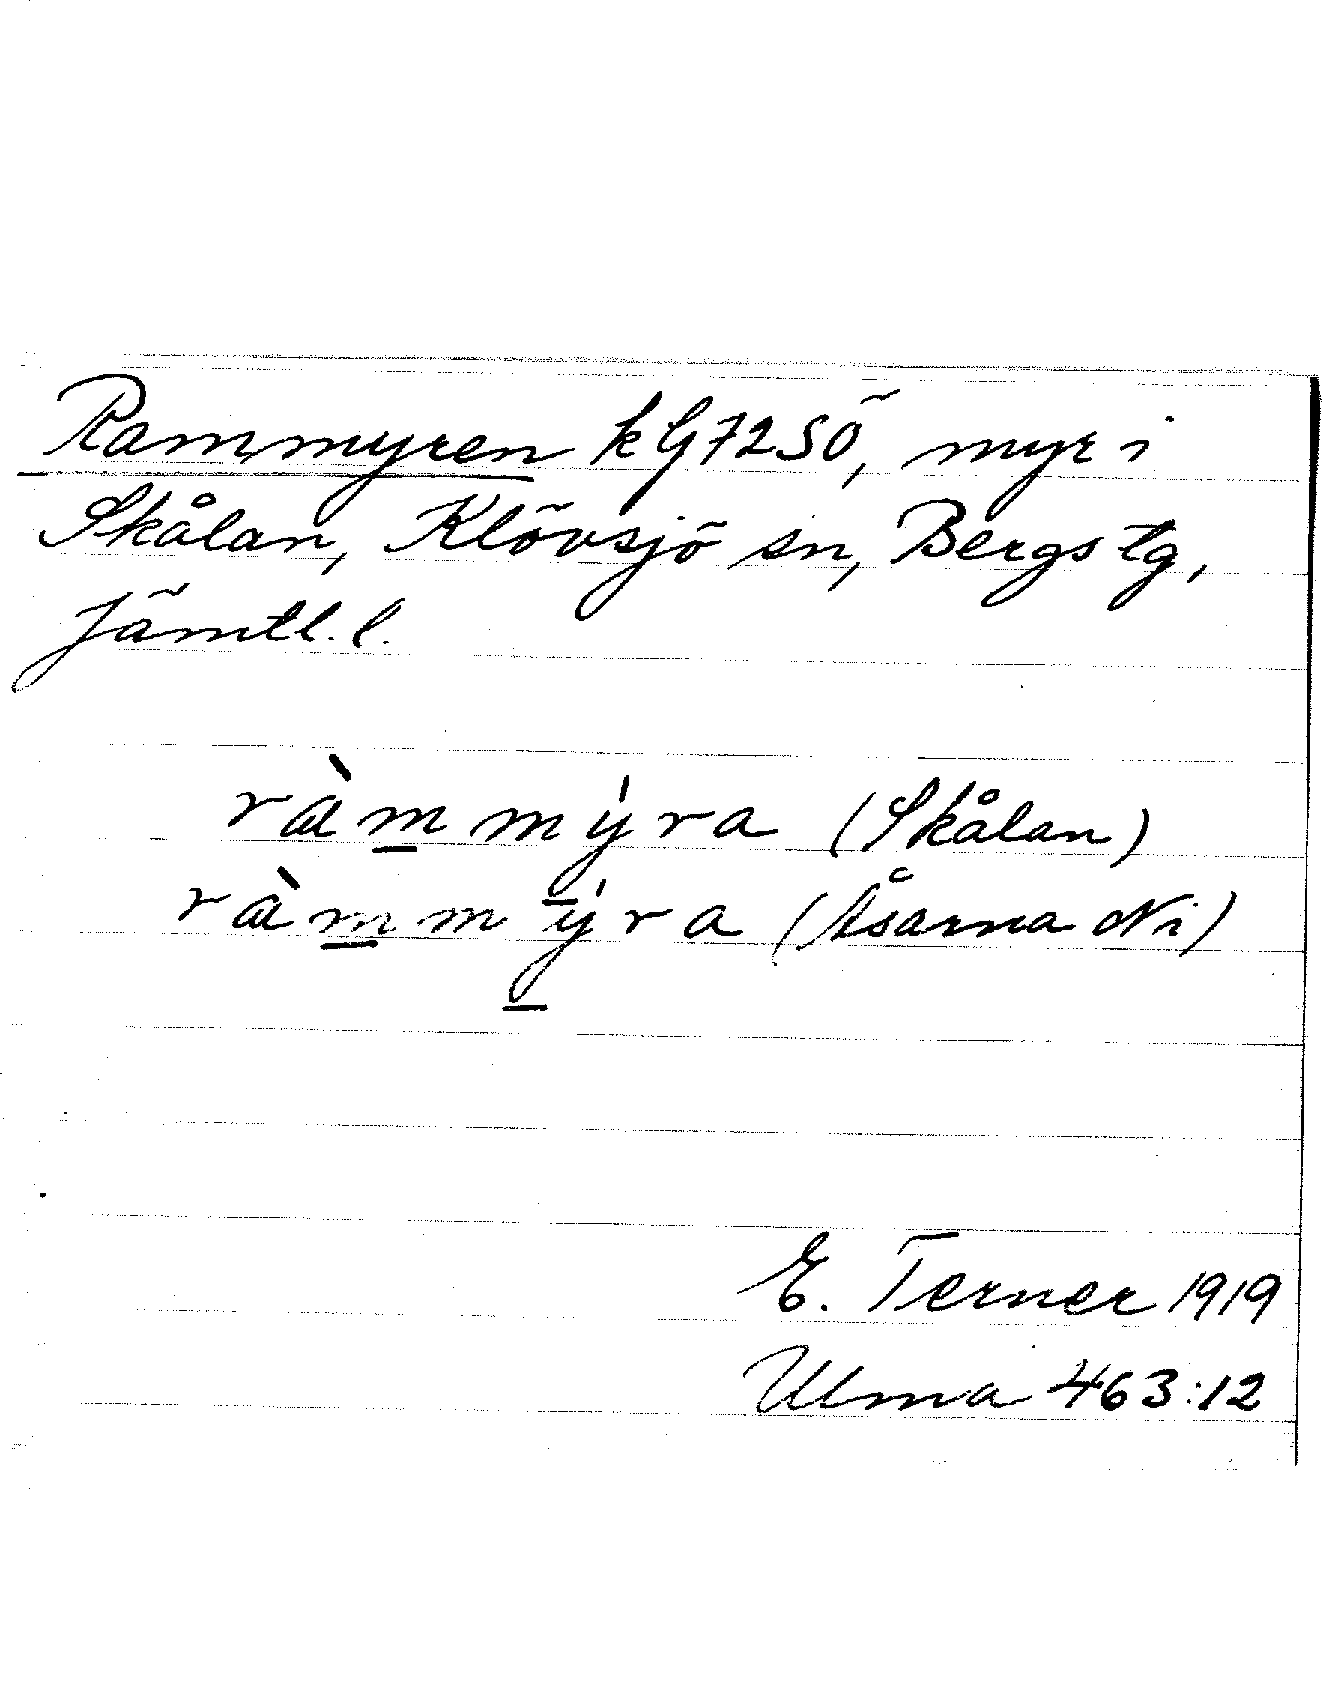 Rammyren kG72SÖ, myr i
Skålan, Klövsjö sn, Bergs tg,
Jämtl. l.
ràmmýra (Skålan)
ràmmýra (Åsarna Ni)
E. Terner 1919
Ulma 463:12